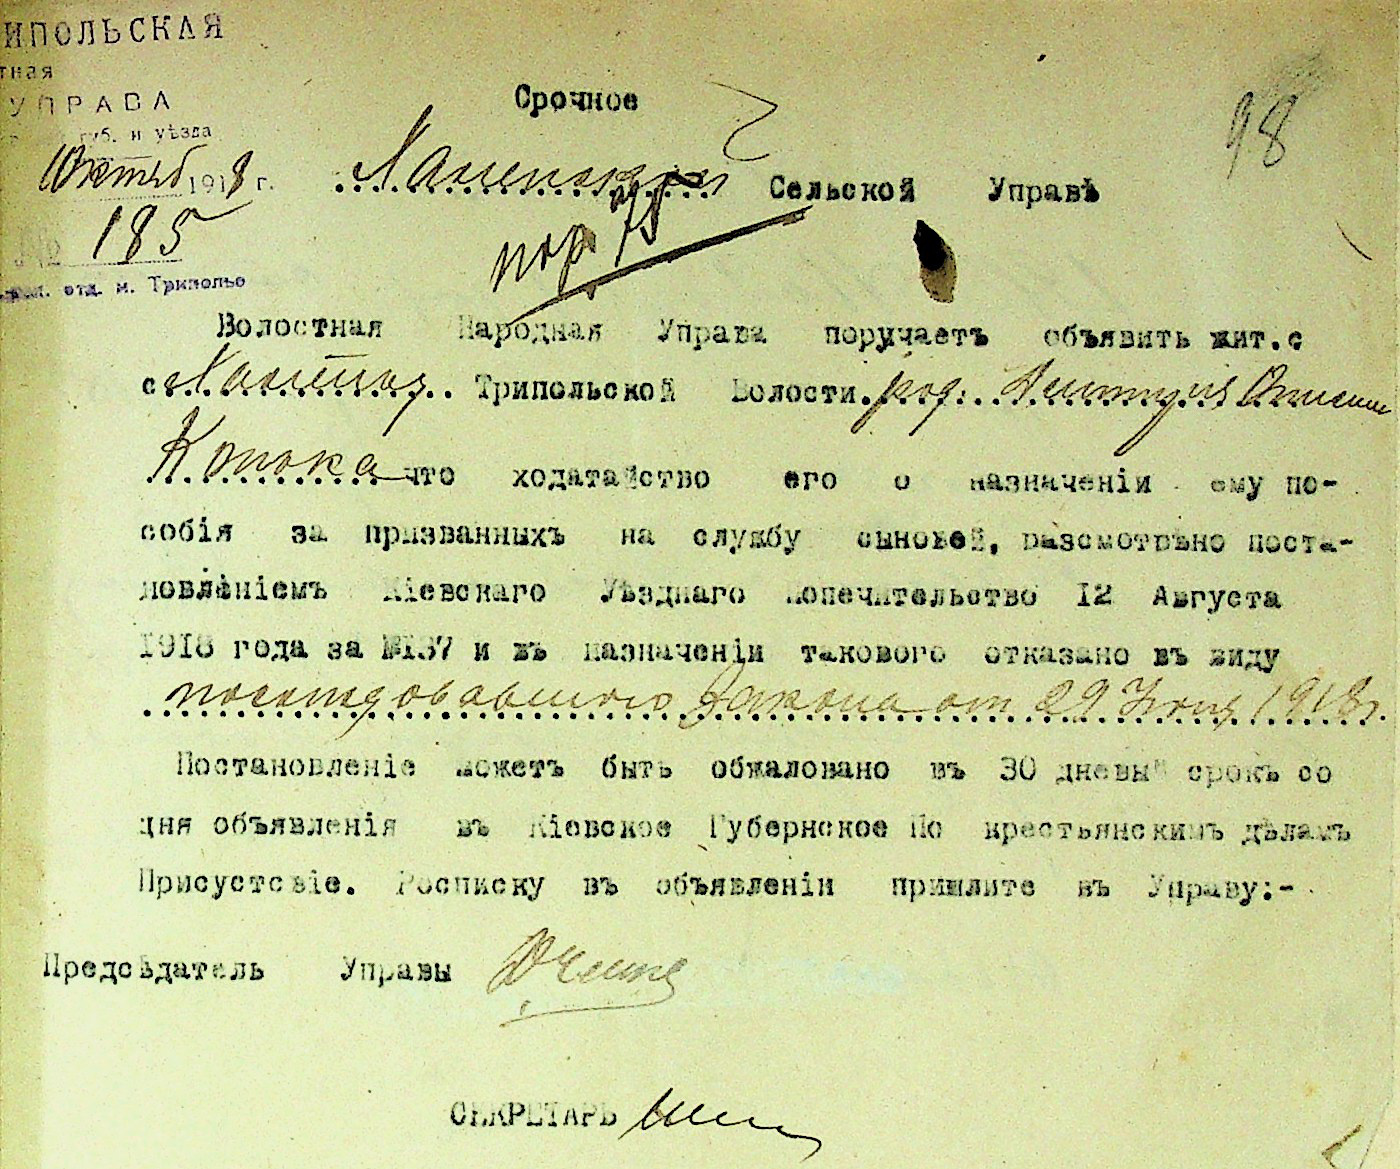 ИПОЛЬСКАЯ
тная
УПРАВА
губ. и уѣзда
Октяб 1918 г.
№ 185
отд. м. Триполье
98
Срочное
Сельской Управѣ
Волостная Народная Управа поручаетъ объявить жит.с
с. Трипольской Волости.
что ходатайство его о назначеніи ему по-
собія за призванныхъ на службу сыновей, разсмотрѣно поста-
новленіемъ Кіевскаго Уѣзднаго Попечительство 12 Августа
1918 года за №137 и въ назначеніи такового отказано въ виду
последовавшаго Закона от 29 1918г.
Постановленіе можетъ быть обжаловано въ 30 дневый срокъ со
дня объявленія въ Кіевское Губернское По крестьянскимъ дѣламъ
Присуствіе. Росписку въ объявленіи пришлите въ Управу:-
Предсѣдатель Управы
СЕКРЕТАРЬ